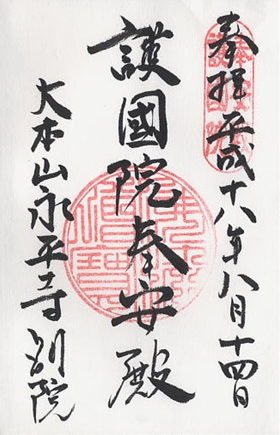 奉拝 平成十八年八月十四日
護國院奉安殿
大本山永平寺別院